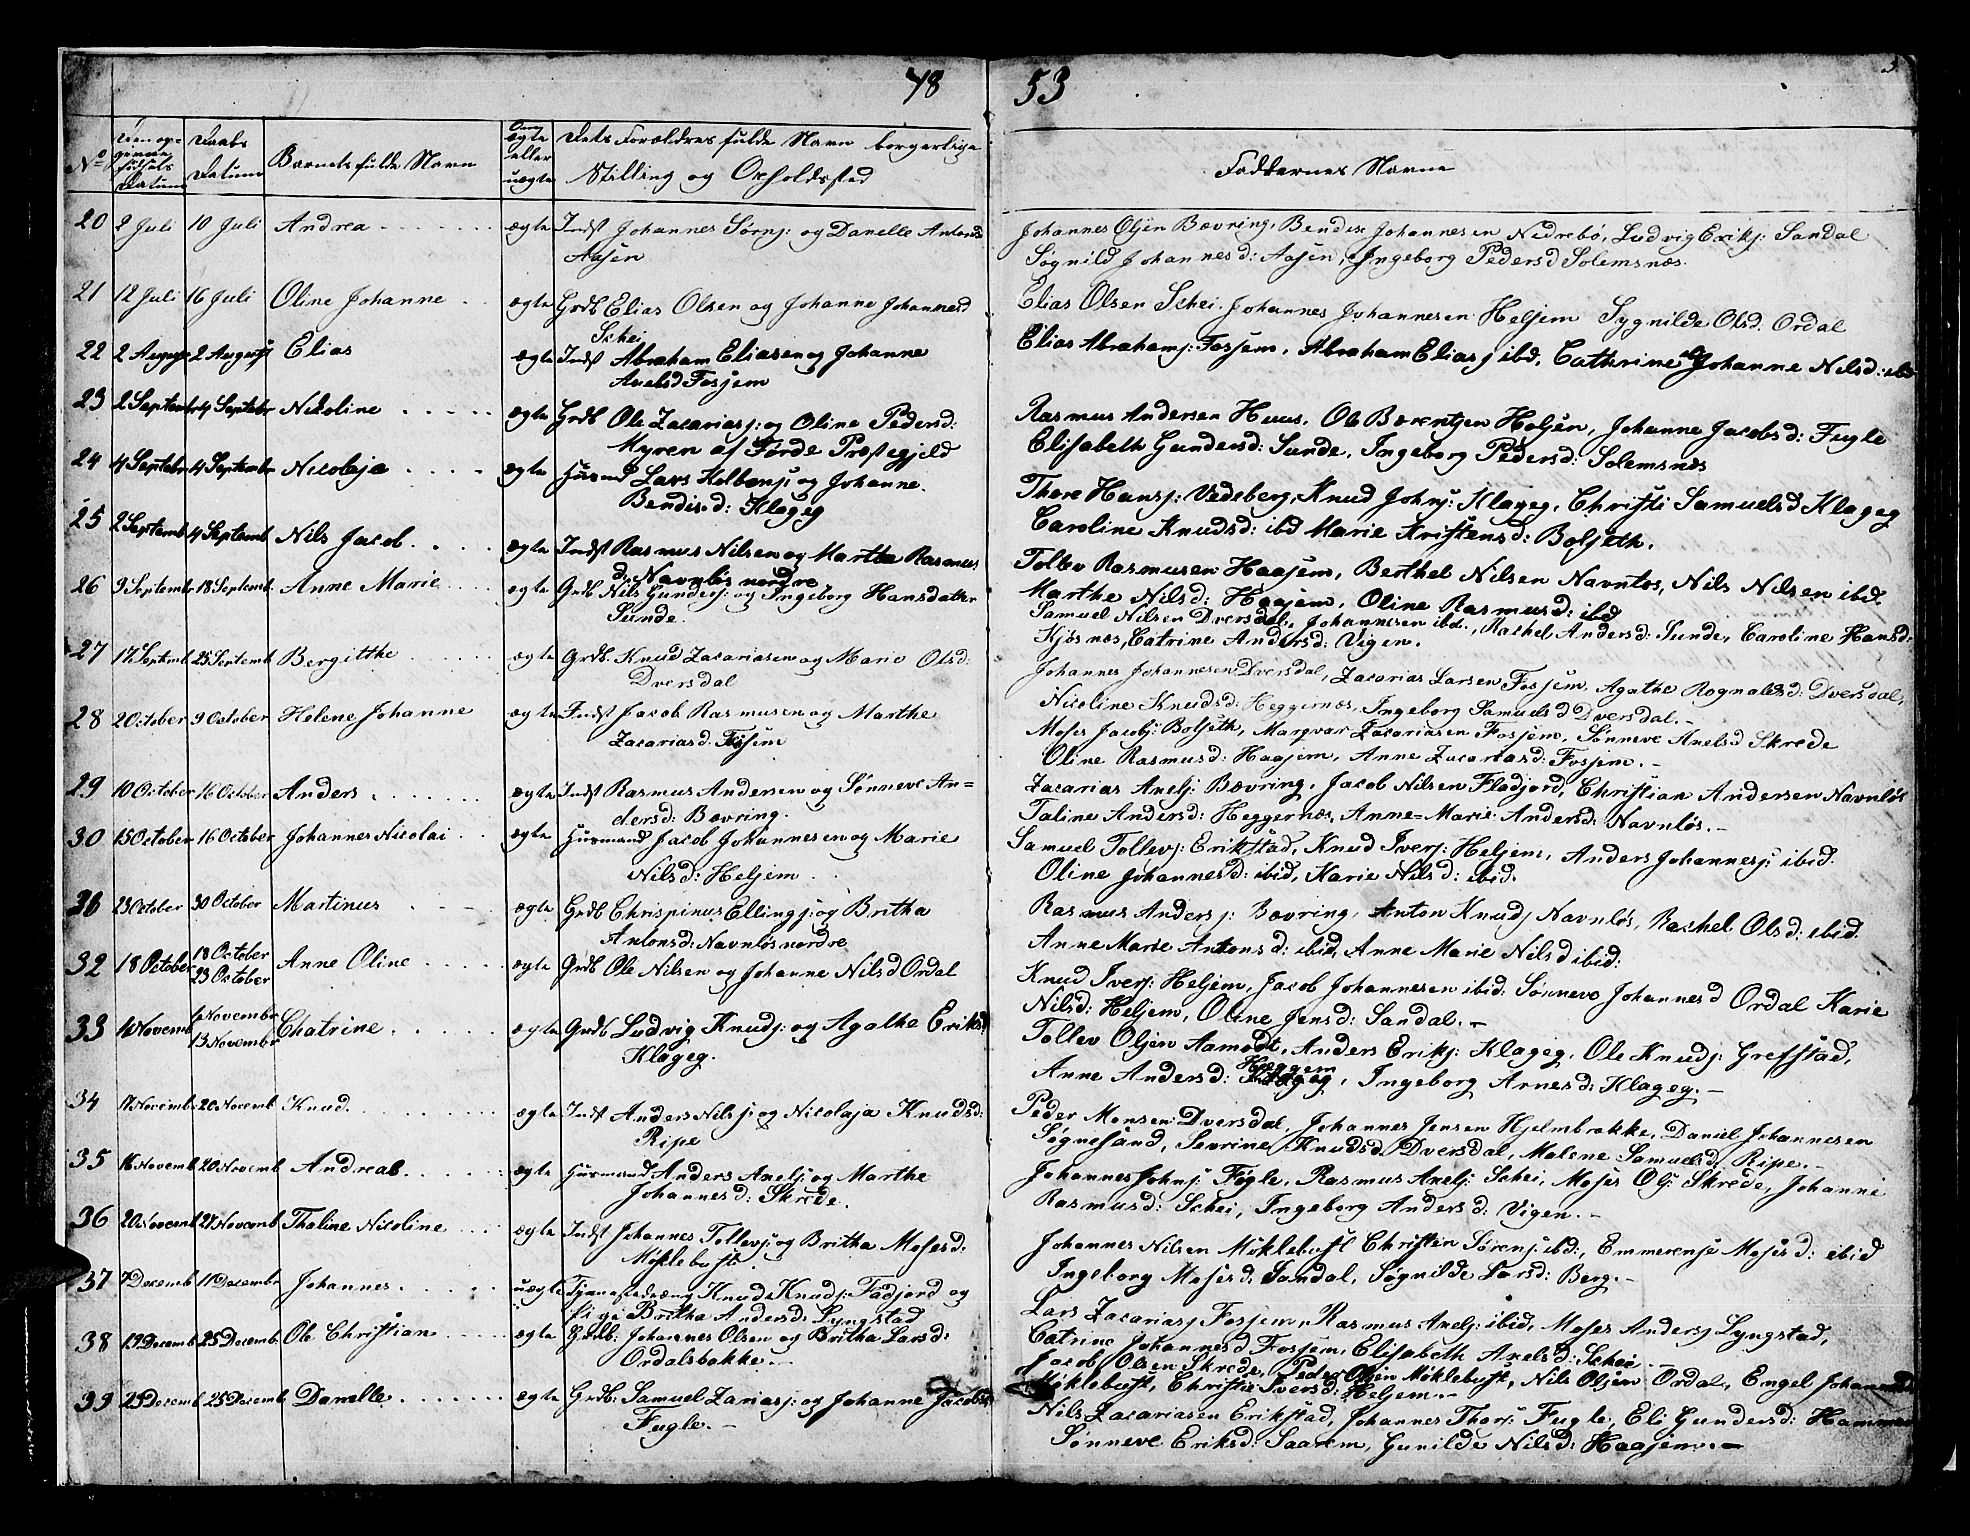 18 53
No Den opgivne Fødsels Datum Daabs Datum Barnets fulde Navn Om ægte eller uægte Dets Forældres fulde Navn borgerlige Stilling og Opholdssted
Faddernes Navne
20 2 Juli 10 Juli Andrea ægte Indst Johannes Sørnsj: og Danelle Antonsd
Aasen
Johannes Olsen Bævring, Bendix Johannesen Nedrebø, Ludvig Eriksj: Sandal
Søgnild Johannesd: Aasen, Ingeborg Pedersd Solemsnæs
21 12 Juli 16 Juli Oline Johanne ægte Grdb Elias Olsen og Johanne Johannesd
Schei
Elias Olsen Schei, Johannes Johannesen Heljem Sygnilde Olsd. Ordal
22 2 August 2 August Elias ægte Indst Abraham Eliasen og Johanne
Axelsd Fossem
Elias Abrahamsj: Fossem, Abraham Eliasj ibd, Cathrine og Johanne Nilsd: ibd
23 2 Septembr 4 Septebr Nicoline ægte Grdb Ole Zacariasj: og Oline Pedersd:
Myren af Førde Præstegjeld
Rasmus Andersen Huus, Ole Bærentsen Heljen, Johanne Jacobsd: Fugle
Elisabeth Gundersd: Sunde, Ingeborg Pedersd: Solemsnæs
24 4 Septebr 4 Septembr Nicoleja ægte Husmd Lars Kolbensj og Johanne
Bendixd: Klageg
Thore Hansj: Vedeberg, Knud Johnsj: Klageg, Christi Samuelsd Klageg
Caroline Knudsd: ibd Marie Kristensd: Bolseth.
25 2 Septemb 4 Septemb Nils Jacob ægte Indst Rasmus Nilsen og Marthe Rasmus
d: Navnløs nordre
Tollev Rasmusen Haajem, Berthel Nilsen Navnløs, Nils Nilsen ibid.
Marthe Nilsd: Haajem, Oline Rasmusd: ibid
26 9 Septembr 18 Septemb. Anne Marie ægte Grdb Nils Gundersj: og Ingeborg Hansdatter
Sunde.
Samuel Nilsen Dversdal, Johannesen ibd., Rachel Andersd: Sunde, Caroline Hansd:
Kjøsnæs, Catrine Andersd: Vigen.
27 17 Septemb 25 Septemb Bergitthe ægte Grdb. Knud Zacariasen og Marie Olsd:
Dversdal
Johannes Johannesen Dversdal, Zacarias Larsen Fossem, Agathe Rognaldsd: Dversdal,
Nicoline Knudsd: Heggernæs, Ingeborg Samuelsd Dversdal.-
28 2 October 9 October Helene Johanne ægte Indst Jacob Rasmusen og Marthe
Zacariasd. Fossem
Moses Jacobsj: Bolseth, Margvar Zacariasen Fossem, Sønneve Axelsd Skrede
Oline Rasmusd: Haajem, Anne Zacariasd: Fossem.-
29 10 October 16 October Anders ægte Indst Rasmus Andersen og Sønneve An=
dersd: Bævring.
Zacarias Axelsj: Bævring, Jacob Nilsen Fladjord, Christian Andersen Navnløs
Taline Andersd: Heggernæs, Anne=Marie Andersd: Navnløs.-
30 15 October 16 October Johannes Nicolai ægte Husmand Jacob Johannesen og Marie
Nilsd: Heljem
Samuel Tollevsj: Erikstad, Knud Iversj: Heljem, Anders Johannesj: ibid.
Oline Johannesd: ibid, Karie Nilsd: ibid.
31 23 October 30 October Martinus ægte Grdb Chrispinus Ellingsj: og Britha
Antonsd: Navnløs nordre
Rasmus Andersj: Bævring, Anton Knudsj Navnløs, Rachel Olsd: ibid.
Anne Marie Antonsd: ibid, Anne Marie Nilsd ibid:
32 18 October 18 October Anne Oline ægte Grdb Ole Nilsen og Johanne Nilsd Ordal
23 October
Knud Iversj: Heljem, Jacob Johannesen ibid: Sønneve Johannesd Ordal Karie
Nilsd: Heljem, Oline Jensd: Sandal.-
33 1 Novemb 6 November Chatrine ægte Grdb Ludvig Knudsj: og Agathe Eriksd
13 Novembr Klageg.
Tollev Olsen Aamodt, Anders Eriksj: Klageg, Ole Knudsj: Grefstad,
Anne Andersd: Klageg Heggem, Ingeborg Arnesd: Klageg.-
34 17 Novemb 20 Novemb Knud ægte Indst Anders Nilsj: og Nicolaja Knudsd:
Ripe
Peder Monsen Dversdal, Johannes Jensen Hjelmbrække, Daniel Johannesen
Søgnesand, Sevrine Knudsd Dversdal, Malene Samuelsd, Ripe.-
35 16 Novemb 20 Novemb Andreas ægte Husmand Anders Axelsj: og Marthe
Johannesd: Skrede.
Johannes Johnsj: Føgle, Rasmus Axelsj: Schei, Moses Olsj: Skrede, Johanne
Rasmusd: Schei, Ingeborg Andersd: Vigen.-
36 20 Novemb 27 Novemb Thaline Nicoline ægte Indst Johannes Tollevsj: og Britha Mosesd:
Møklebust
Johannes Nilsen Møklebust Christen Sørensj: ibd:, Emmerense Mosesd: ibid
Ingeborg Mosesd: Sandal, Søgnilde Larsd: Berg.-
37 7 Decemb 11 Decembr Johannes uægte Tjenestedreng Knud Knudsj: Fladjord og
Pige Britha Andersd: Lyngstad
Lars Zacariasj Fossem, Rasmus Axelsj: ibid, Moses Andersj Lyngstad,
Catrine Johannesd Fossem, Elisabeth Axelsd: Schei
38 19 Decemb 25 Decemb Ole Christian ægte Grdb: Johannes Olsen og Britha Larsd:
Ordalsbakke.-
Jacob Olsen Skrede, Peder Olsen Møklebust, Nils Olsen Ordal, Engel Johannesd
Møklebust, Christi Iversd: Heljem.-
39 25 Decemb 25 Decemb Danelle ægte Grdb: Samuel Zariasj: og Johanne Jacobsd
Fugle.-
Nils Zacariasen Erikstad, Johannes Thorsj: Fugle, Eli Gundersd: Hammer
Sønneve Eriksd: Saarem, Gunilde Nilsd: Haajem.-